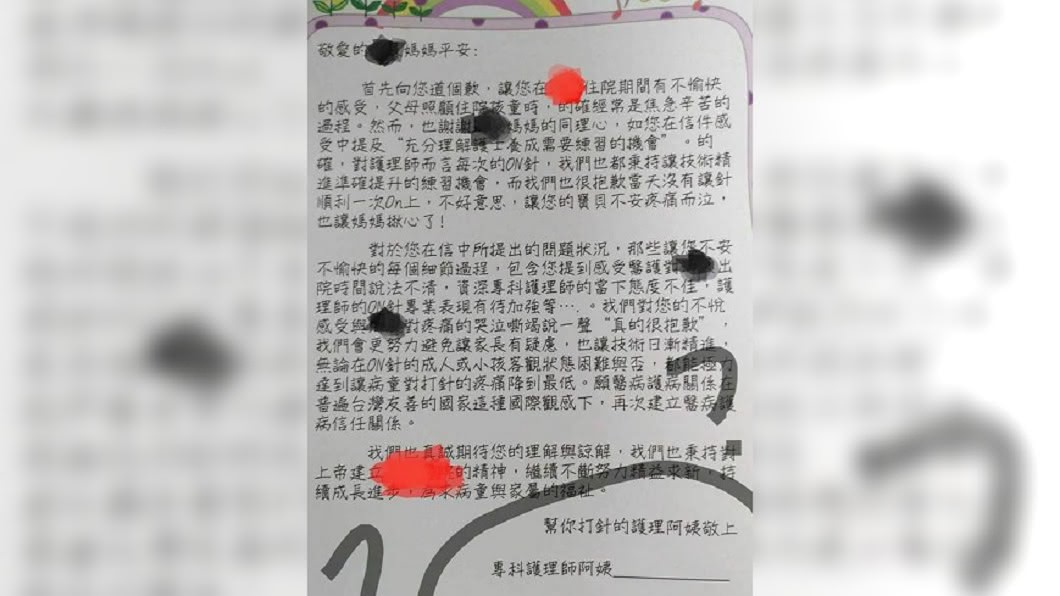 敬愛的 媽媽平安:
首先向您道個歉，讓您在 住院期間有不愉快
的感受，父母照顧住院孩童時，的確經常是焦急辛苦的
過程。然而，也謝謝 媽媽的同理心，如您在信件感
受中提及“充分理解護士養成需要練習的機會”。的
確，對護理師而言每次的ON針，我們也都秉持讓技術精
進準確提升的練習機會，而我們也很抱歉當天沒有讓針
順利一次On上，不好意思，讓您的寶貝不安疼痛而泣，
也讓媽媽揪心了!
對於您在信中所提出的問題狀況，那些讓您不安
不愉快的每個細節過程，包含您提到感受醫護對 出
院時間說法不清，資深專科護理師的當下態度不佳，護
理師的ON針專業表現有待加強等…。我們對您的不悅
感受與 對疼痛的哭泣嘶竭說一聲“真的很抱歉”，
我們會更努力避免讓家長有疑慮，也讓技術日漸精進，
無論在ON針的成人或小孩客觀狀態困難與否，都能極力
達到讓病童對打針的疼痛降到最低。願醫病護病關係在
普遍台灣友善的國家這種國際觀感下，再次建立醫病護
病信任關係。
我們也真誠期待您的理解與諒解，我們也秉持對
上帝建立 的精神，繼續不斷努力精益求新，持
續成長進步，為求病童與家屬的福祉。
幫你打針的護理阿姨敬上
專科護理師阿姨